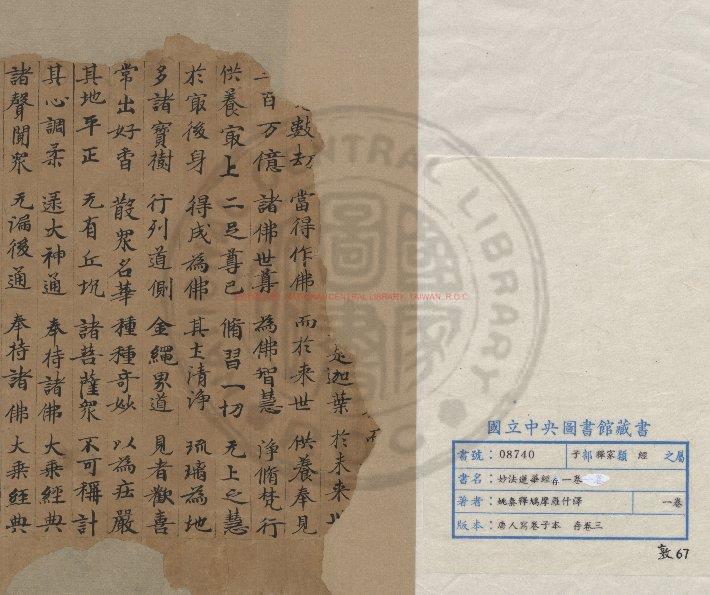 是迦葉 於未來
數劫 當得作佛 而於來世 供養奉見
二百万億 諸佛世尊 為佛智慧 淨脩梵行
供養㝡上 二足尊已 脩習一切 无上之慧
於㝡後身 得成為佛 其土清淨 琉璃為地
多諸寶樹 行列道側 金繩界道 見者歡喜
常出好香 散眾名華 種種奇妙 以為庄嚴
其地平正 无有丘坑 諸菩薩眾 不可稱計
其心調柔 逮大神通 奉持諸佛 大乘經典
諸聲聞眾 无漏後通 奉持諸佛 大乘經典
國立中央圖書館藏書
書號：08740 子部釋家類 經 之屬
書名：妙法蓮華經存一卷
著者：姚秦釋鳩摩羅什譯 一卷
版本：唐人寫卷子本 存卷三
敦67
NATIONAL CENTRAL LIBRARY, TAIWAN, R.O.C
CENTRAL LIBRARY